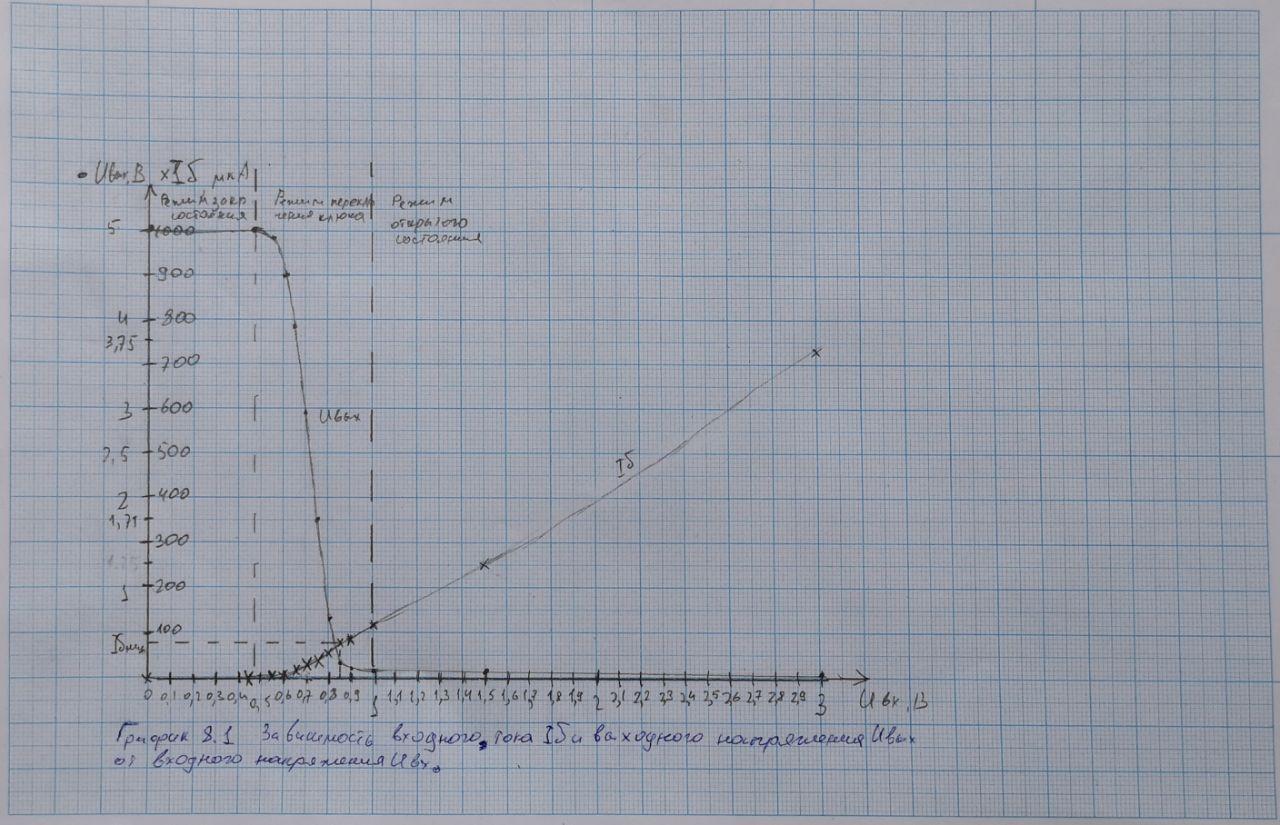 • Uвых,В ×Iб мкА
Режим закр Режим перекл Режим
состояния чения ключа открытого
состояния
5 1000
900
4 800
3,75
700
3 600
Uвых
2,5 500
Iб
2 400
1,71
300
1,25
1 200
100
Iбнас
0 0,1 0,2 0,3 0,4 0,5 0,6 0,7 0,8 0,9 1 1,1 1,2 1,3 1,4 1,5 1,6 1,7 1,8 1,9 2 2,1 2,2 2,3 2,4 2,5 2,6 2,7 2,8 2,9 3 Uвх,В
График 8.1 Зависимость входного тока Iб и выходного напряжения Uвых
от входного напряжения Uвх.